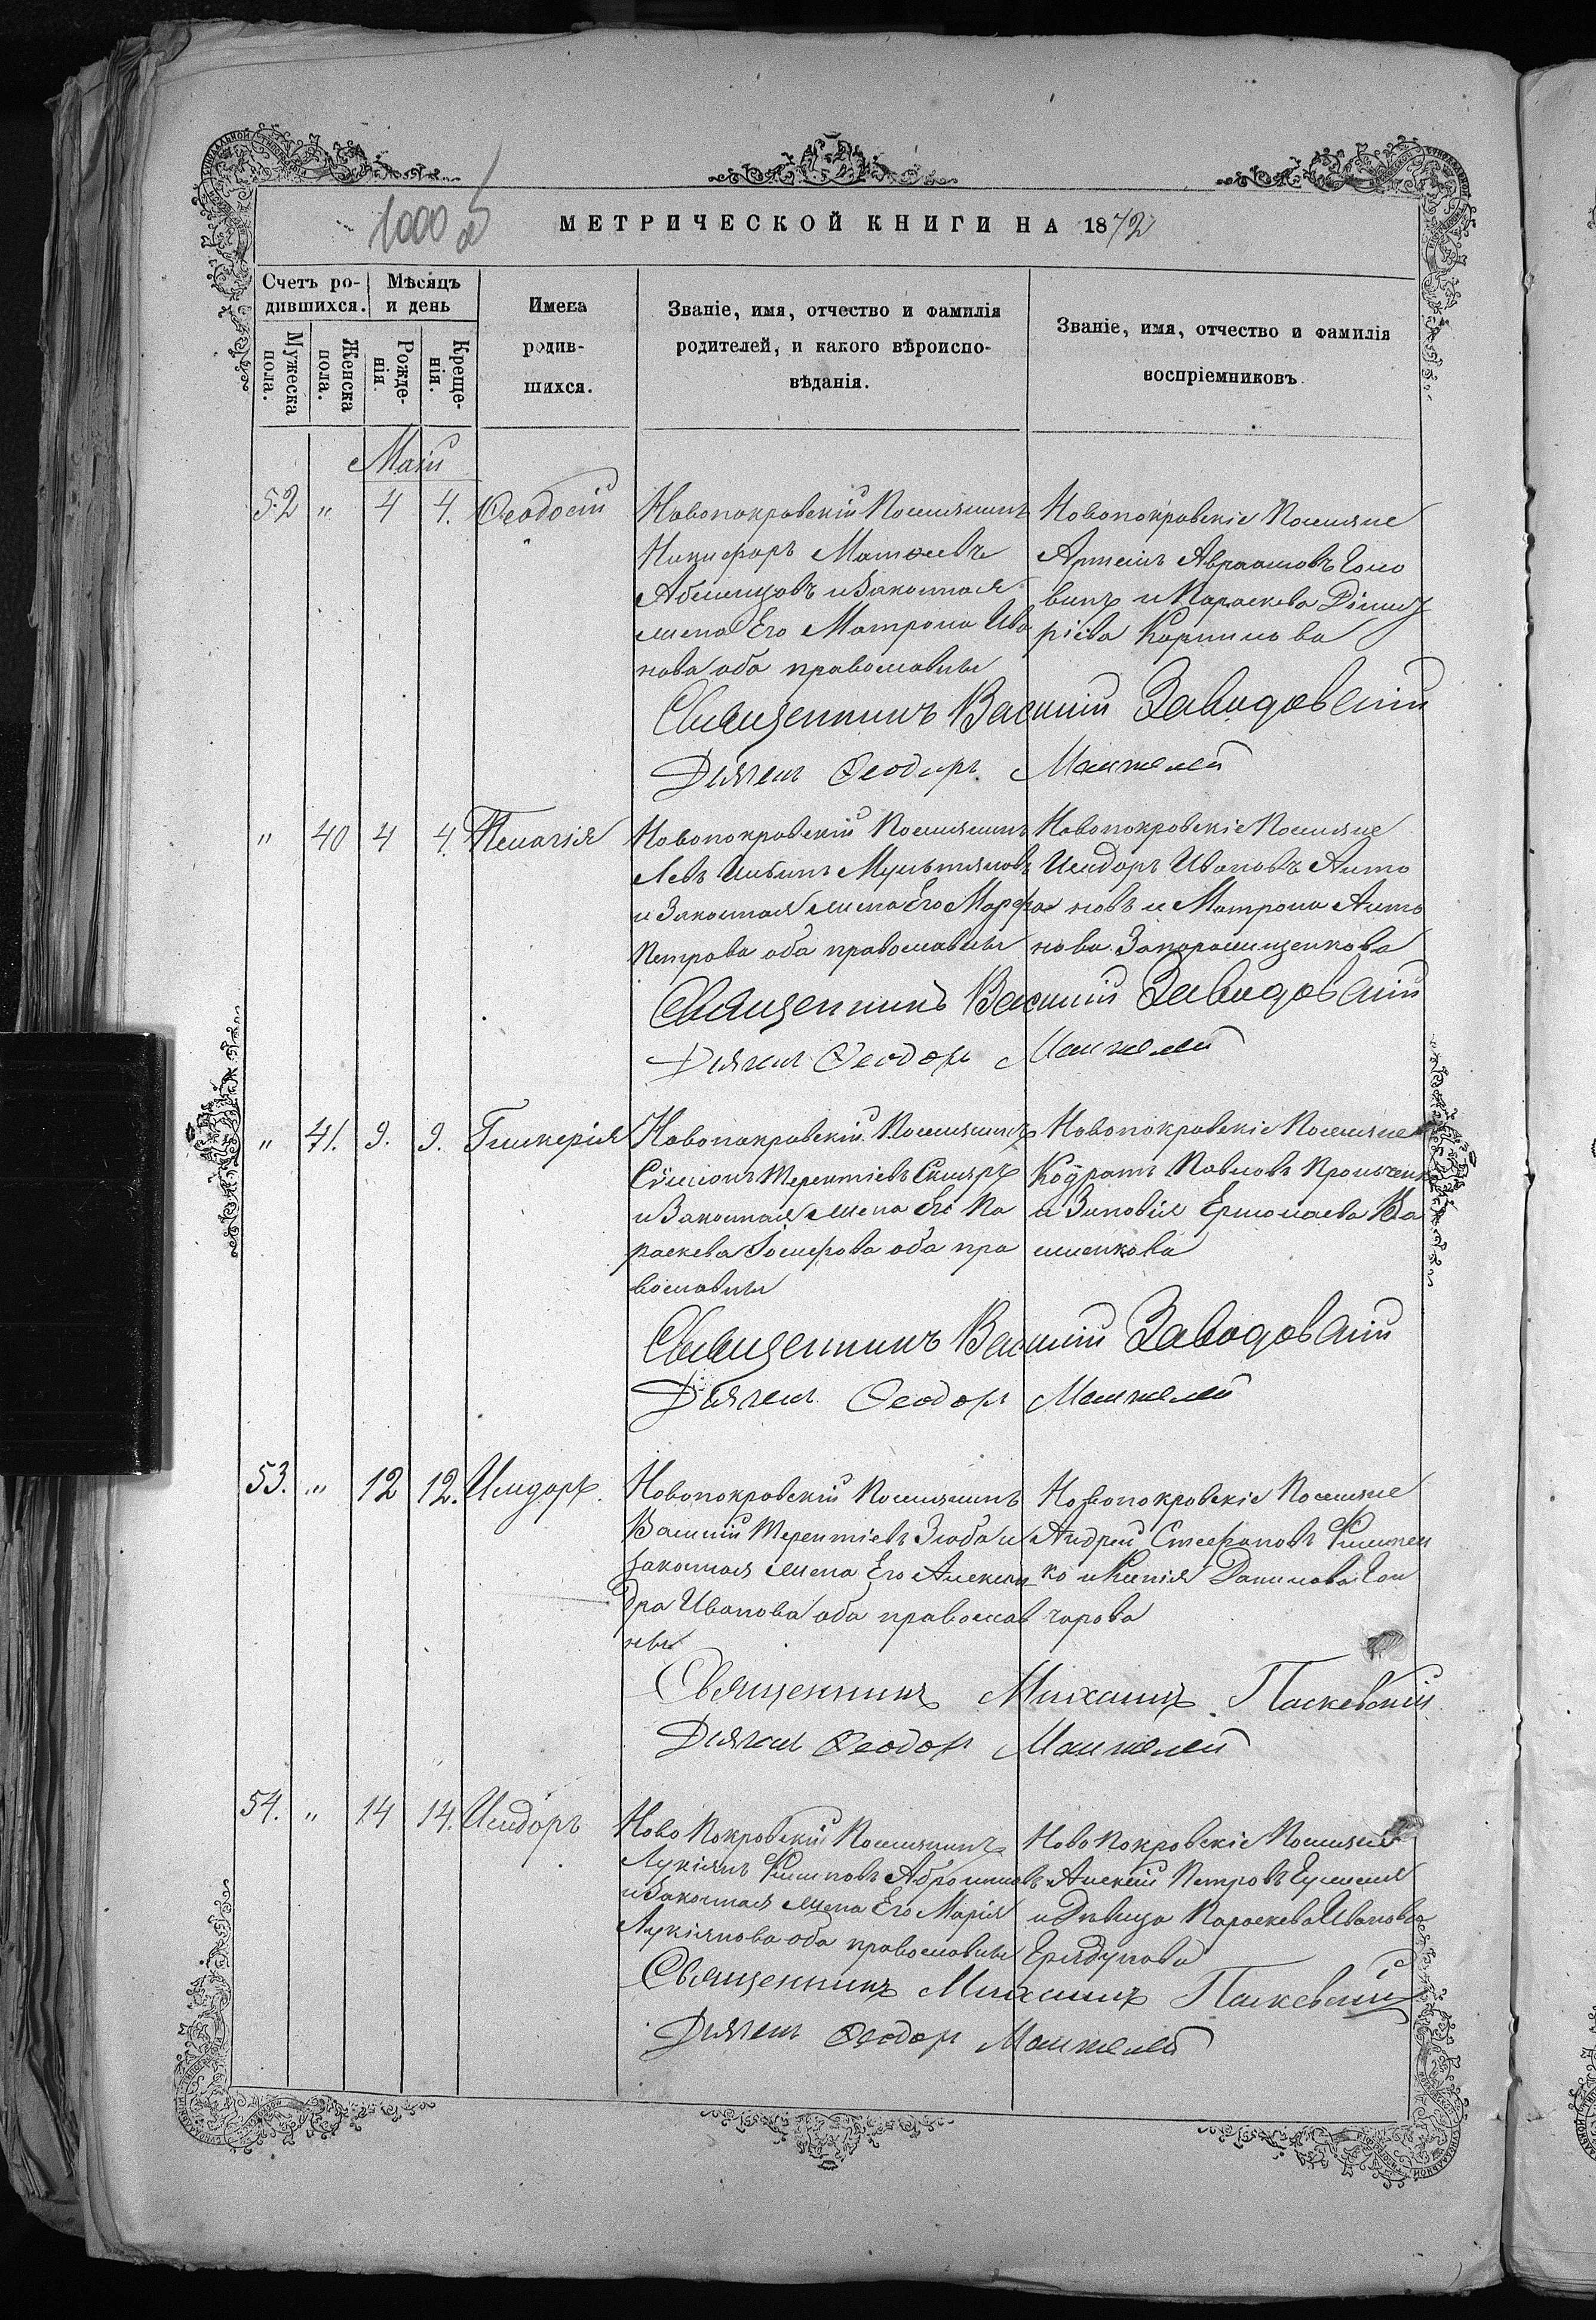 1000
МЕТРИЧЕСКОЙ КНИГИ НА 1872
Счетъ ро-
дившихся.
Мѣсяцъ
и день
Мужеска
пола.
Женска
пола.
Рожде-
нія.
Креще-
нія.
Имена
родив-
шихся.
Званіе, имя, отчество и фамилія
родителей, и какого вѣроиспо-
вѣданія.
Званіе, имя, отчество и фамилія
воспріемниковъ.
Маій
52 " 4 4. Ѳеодосій
Новопокровскій Поселянинъ
Никифоръ Матѳеевъ
и Законная
жена Его Матрона Ива
нова оба православны
Новопокровскіе Поселяне
Артемъ Авраамовъ Голо
винъ и Параскева Диміт
ріева Корнилова
Священникъ Василій Заводовскій
Дьячекъ Ѳеодоръ Манжелей
" 40 4 4. Пелагія
Новопокровскій Поселянинъ
Левъ
и Законная жена Его Марфа
Петрова оба православны
Новопокровскіе Поселяне
Исидоръ Ивановъ Анто
новъ и Матрона Анто
нова
Священникъ Василій Заводовскій
Дьячекъ Ѳеодоръ Манжелей
" 41. 9. 9. Гликерія
Новопокровскій Поселянинъ
Сѵмеонъ Терентіевъ Скляръ
и Законная жена Его Па
раскева Іосифова оба пра
вославны
Новопокровскіе Поселяне
Кодратъ Павловъ
и Зиновія Ермолаева Ва
силенкова
Священникъ Василій Заводовскій
Дьячекъ Ѳеодоръ Манжелей
53. " 12 12. Исидоръ.
Новопокровскій Поселянинъ
Василій Терентіевъ Злоба и
законная жена Его Алексан
дра Иванова оба православ
ны
Новопокровскіе Поселяне
Андрей Стефановъ Филипен
ко и Ксенія Данилова Гон
чарова
Священникъ Михаилъ Паскевскій
Дьячекъ Ѳеодоръ Манжелей
54. " 14 14. Исидоръ
Ново Покровскій Поселянинъ
Лукіянъ Филиповъ Абросимов
и Законная жена Его Марія
Лукіянова оба православны
Ново Покровскіе Поселяне
Алексій Петровъ
и Дѣвица Параскева Иванова
Священникъ Михаилъ Паскевскій
Дьячекъ Ѳеодоръ Манжелей